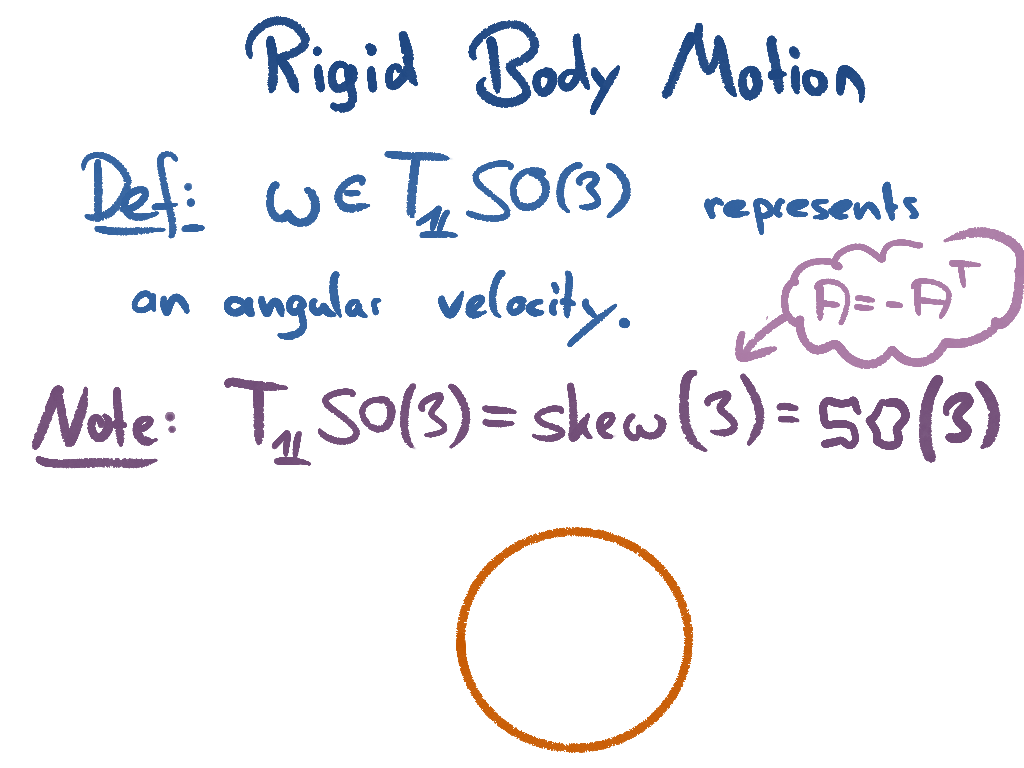 Rigid Body Motion
Def: ω ∈ T_𝟙 SO(3) represents
an angular velocity.
A = -A^T
Note: T_𝟙 SO(3) = skew(3) = so(3)